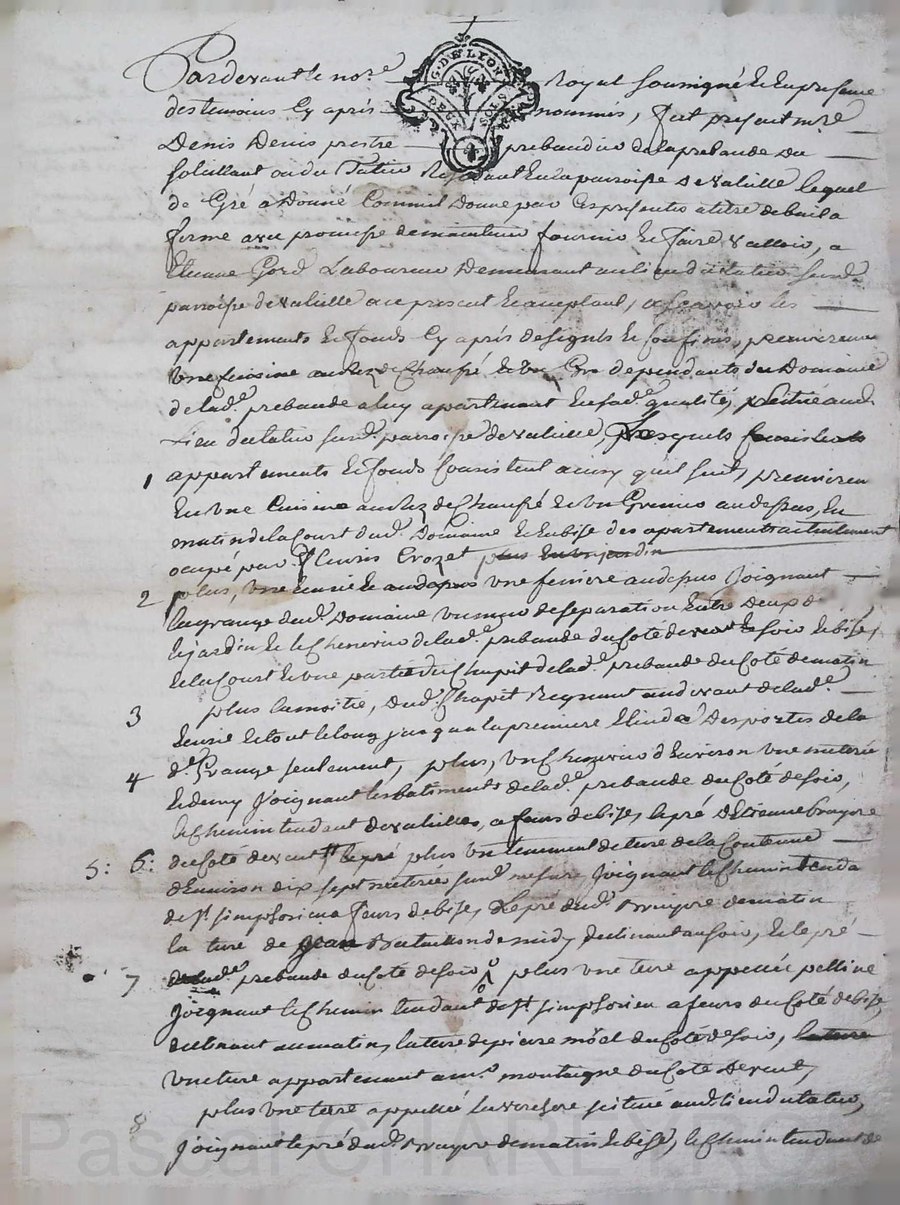 G. DE LYON
DEUX SOLS
Pardevant le no.re Royal soussigné et en presence
des temoins cy après nommés, fut present m.re
Denis Denis prestre prebandier de la prebande du
folillant ou du Tatier Residant en la parroisse de valeille lequel
de Gré a Donné Comme il donne par Ces presentes a titre de bail a
ferme avec promesse de maintenir fournir et faire valloir, a
Etienne Gord Laboureur Demeurant au lieu du tatier susd.
parroisse de valeille a ce present et acceptant, a scavoir les
appartements et fonds cy après designés et confinés, premierement
Une cuisine au rez de Chaussé et un dependants du Domaine
de lad.e prebande a luy apartenant en sad.e qualité, scittué aud.
Lieu du tatier susd. parroisse de valeille, Lesquels
1 appartements et fonds Consistent ainsy quil suit, premierem
En une Cuisine au rez de Chaussé et un Grenier au dessus, en
matin de la Court dud. Domaine et en bise des apartements actuelement
ocupé par Fleuris Crozet plus en un jardin
2 plus, une ecurie et au dessus une feniere au dessus Joignant
la grange dud. Domaine un mur de separation entre deux
le jardin et le chenevier de lad.e prebande du coté de vent et soir et bise,
et la Court et une partie du Chapit de lad.e prebande du Coté de matin
3 plus la moitié, dud. Chapit Regnant au devant de lad.e
Ecurie et tout le long jusqua la premiere des portes de la
4 d.e Grange seulement, plus, un Chenevier d'Environ une meterée
et demy Joignant les batiments de lad.e prebande du Coté de soir,
le chemin tendant de valeilles, a feurs de bise, le pré d'Etienne bruyere
5: 6: du Coté de vent le pré plus un tennement de terre de la Contenue
d'Environ dix sept meterées susd. mesure, Joignant le chemin tenda
de st. simphorien a feurs de bise, Le pré dud. Bruyere de matin
la terre de Jean Bataillon de midy declinant au soir, et le pré
7 de lad.e prebande du Coté de soir plus une terre appellée pelline
Joignant le Chemin tendant de st. simphorien a feurs du Coté de bise,
declinant au matin, la terre de pierre môel du Coté de soir, la terre
une terre appartenant a m.r montaigne du Coté de vent,
8 plus une terre appellée Lavoresore scittué aud. lieu du tatier,
Joignant le pré dud. Bruyere de matin et bise, le chemin tendant de
Pascal CHARETRON